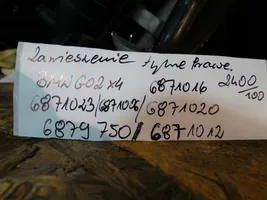 Zawieszenie tylne Prawe.
BMW G02 X4 6871016 2400/100
6871023/6871096/6871020
6879750/6871012